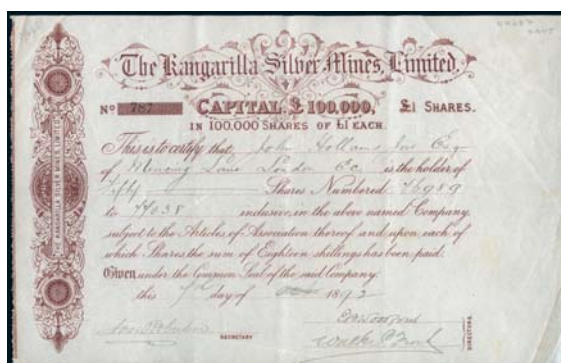 The Kangarilla Silver Mines, Limited.
No 787 CAPITAL, £100,000, £1 SHARES.
IN 100,000 SHARES OF £1 EACH.
This is to certify that John Hollams Jnr Esq
of Mincing Lane London Ec is the holder of
Fifty Shares Numbered 76989
to inclusive, in the above named Company,
subject to the Articles of Association thereof and upon each of
which Shares the sum of Eighteen shillings has been paid.
Given under the Common Seal of the said Company.
this 7th day of 1892
SECRETARY
DIRECTORS
THE KANGARILLA SILVER MINES, LIMITED